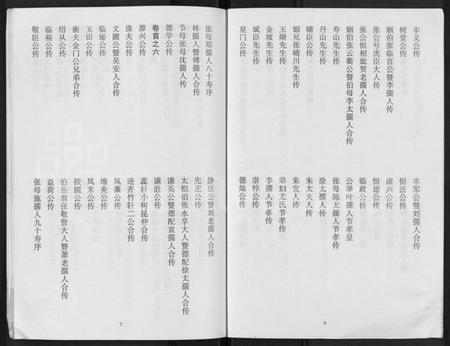 丰义公传
树堂公传
姻伯张临官公暨李孺人合传
张公号虎臣大人传
张公恒相毗贺老孺人合传
姻伯张云衢公暨伯母李太孺人合传
寿山先生传
丹山先生传
辅臣公传
姻兄张晴川先生传
玉阶先生传
金坡先生传
斌臣先生传
星门公传
丰军公暨刘孺人合传
恒汲公传
恒德公传
谦兴公传
临政公传
公举叶孺人节孝呈
张母陈太孺人节孝传
徐太孺人传
朱太夫人传
朱宜人传
弟妇尤氏节孝传
李孺人节孝传
崇梓公传
德灿公传
6
张母郑孺人八十寿序
林孺人暨傅孺人合传
张母张母沈孺人传
德学公传
卷首之六
源兴公传
涤夫公传
文圃公暨吴安人合传
临裕公传
玉田公传
衡夫金门公兄弟合传
绍从公传
临裕公传
敬臣公传
静臣公暨刘老孺人合传
先正公传
太姻伯张水享大人暨德配徐太孺人合传
谦英公暨德配袁孺人合传
谦胜公传
藟轩小利昆仲合传
逊齐竹轩二公合传
风藻公传
增炎公传
风来公传
筱圃公传
伯岳翁张敬贤大人暨萧老孺人合传
益荷公传
张母施孺人九十寿序
7